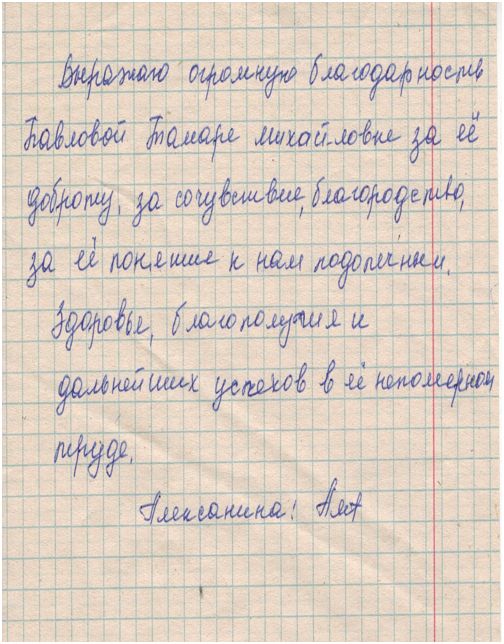 Выражаю огромную благодарность
Павловой Тамаре михайловне за её
доброту, за сочувствие, благородство,
за её понятие к нам подопечным.
Здоровье, благополучия и
дальнейших успехов в её непомерном
труде.
Алексанина!